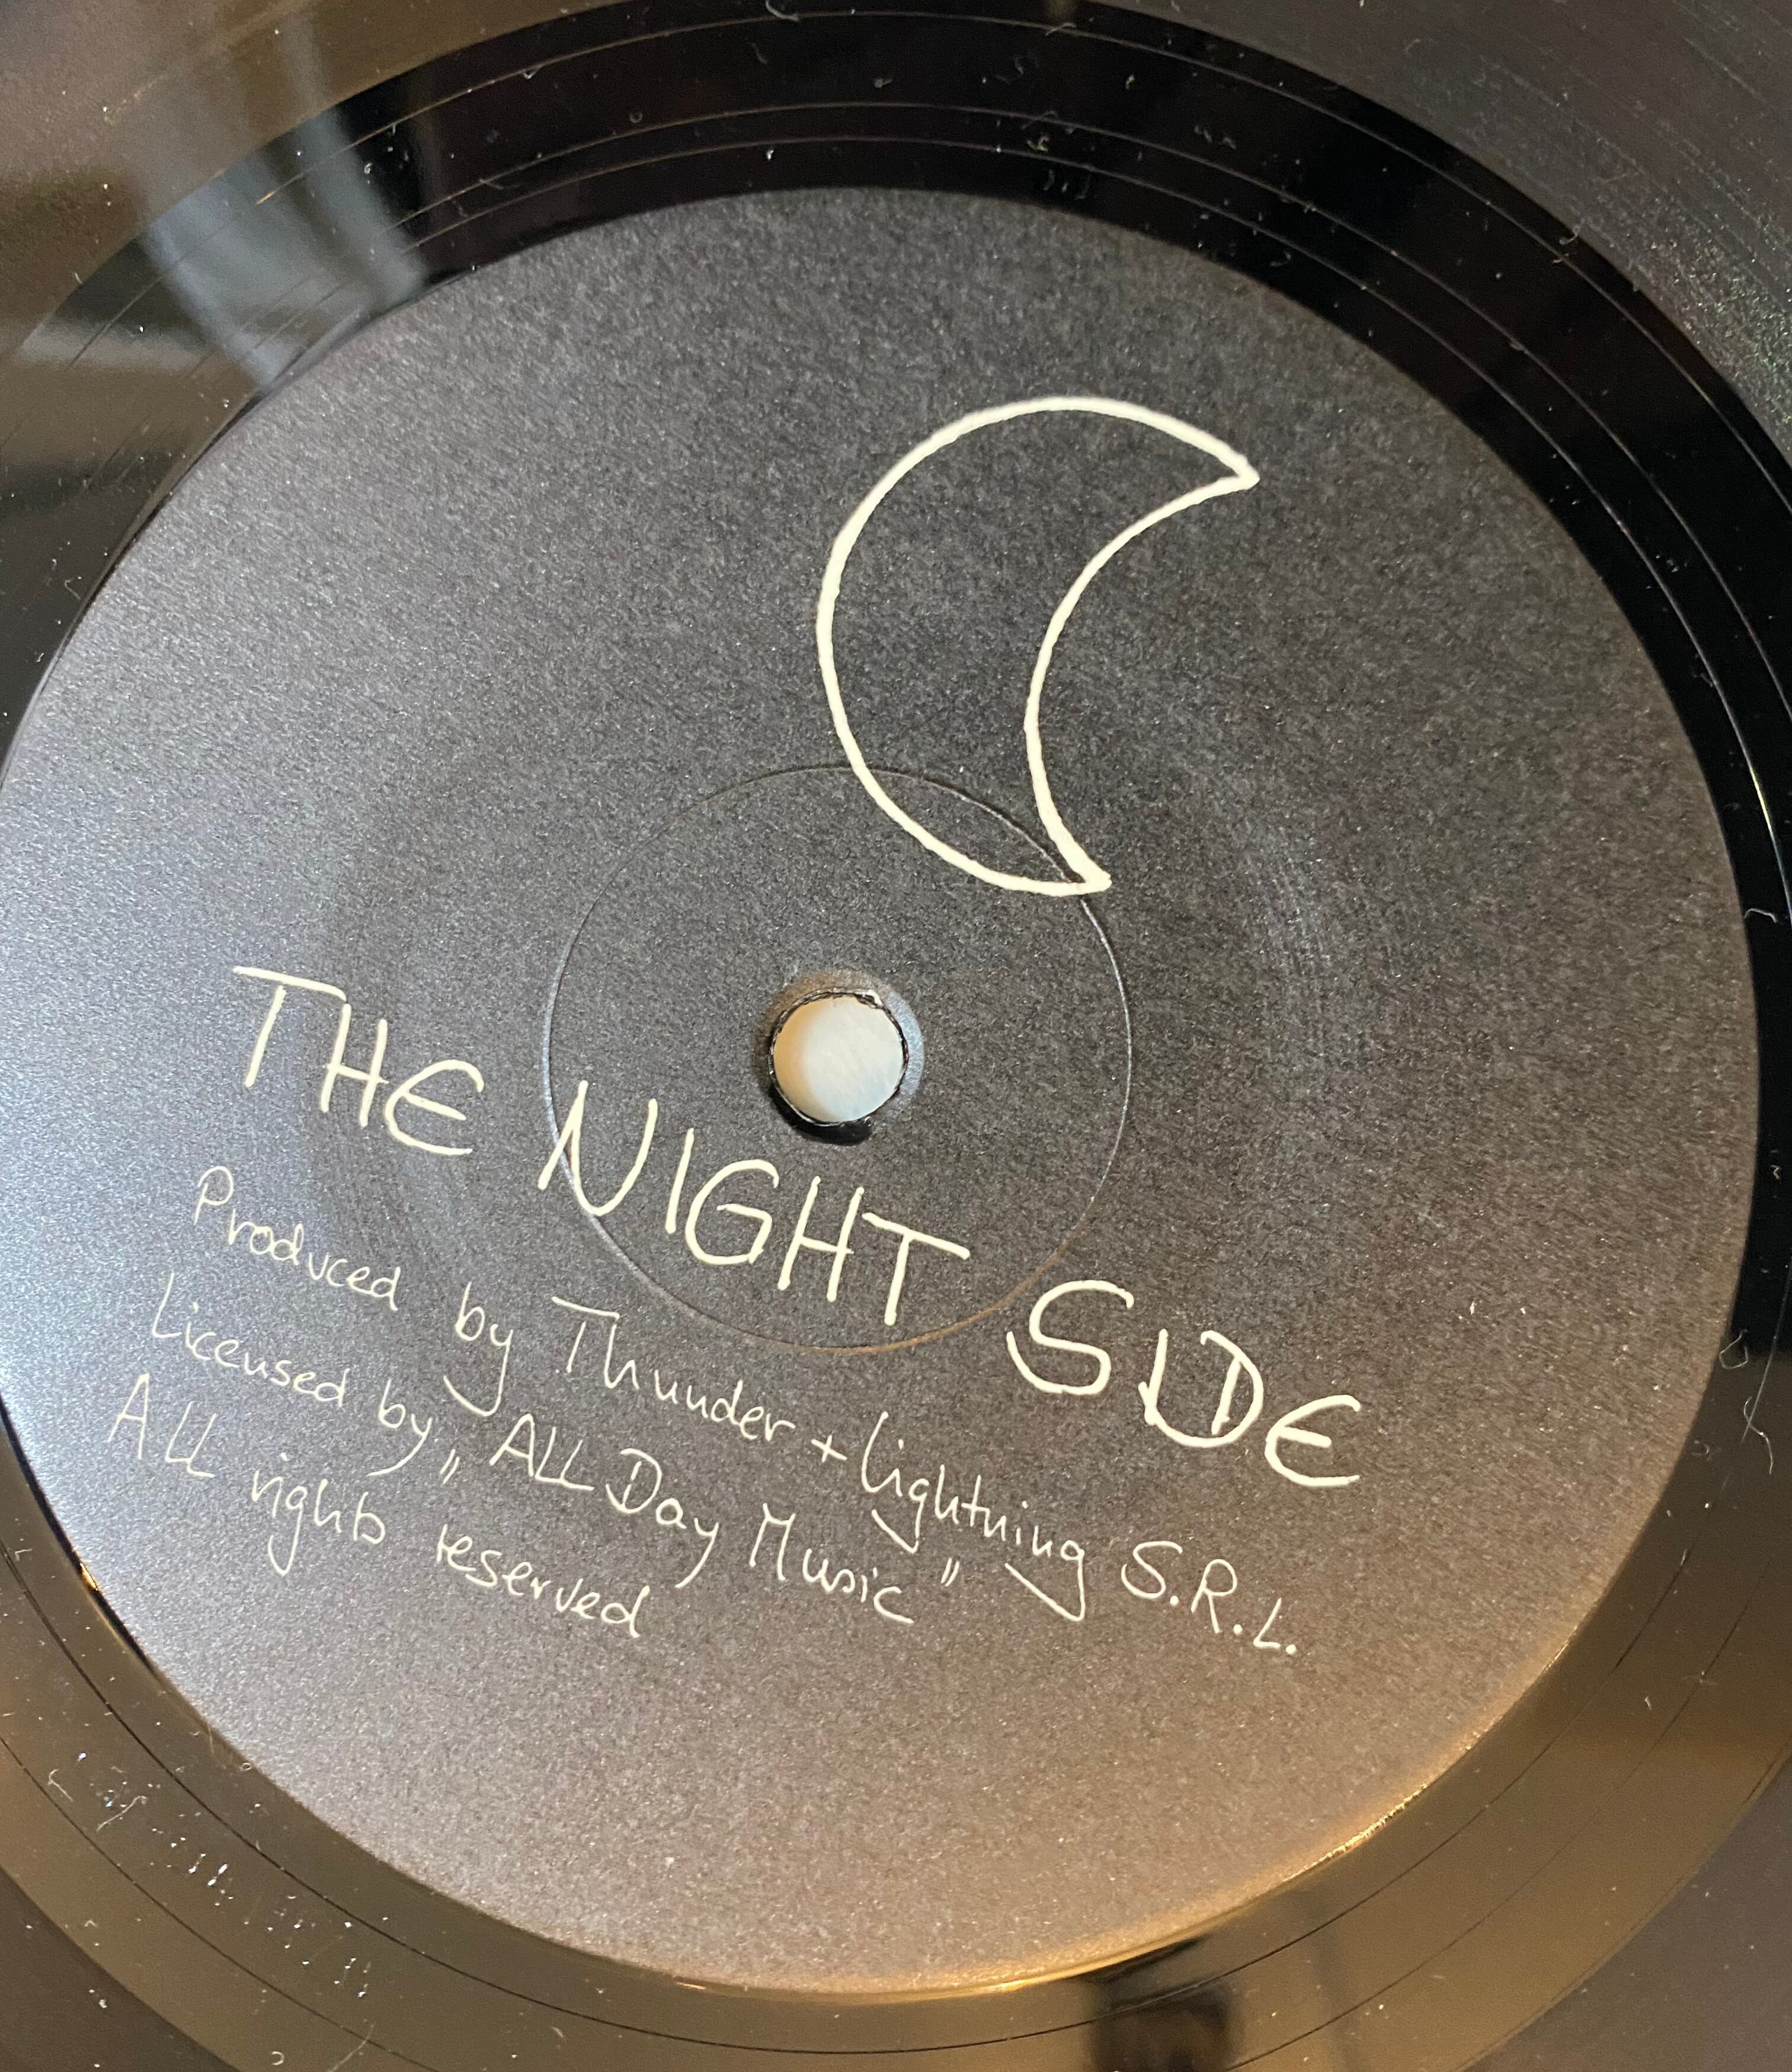 THE NIGHT SIDE
Produced by Thunder + lightning S.R.L.
Licensed by "ALL Day Music"
ALL rights reserved